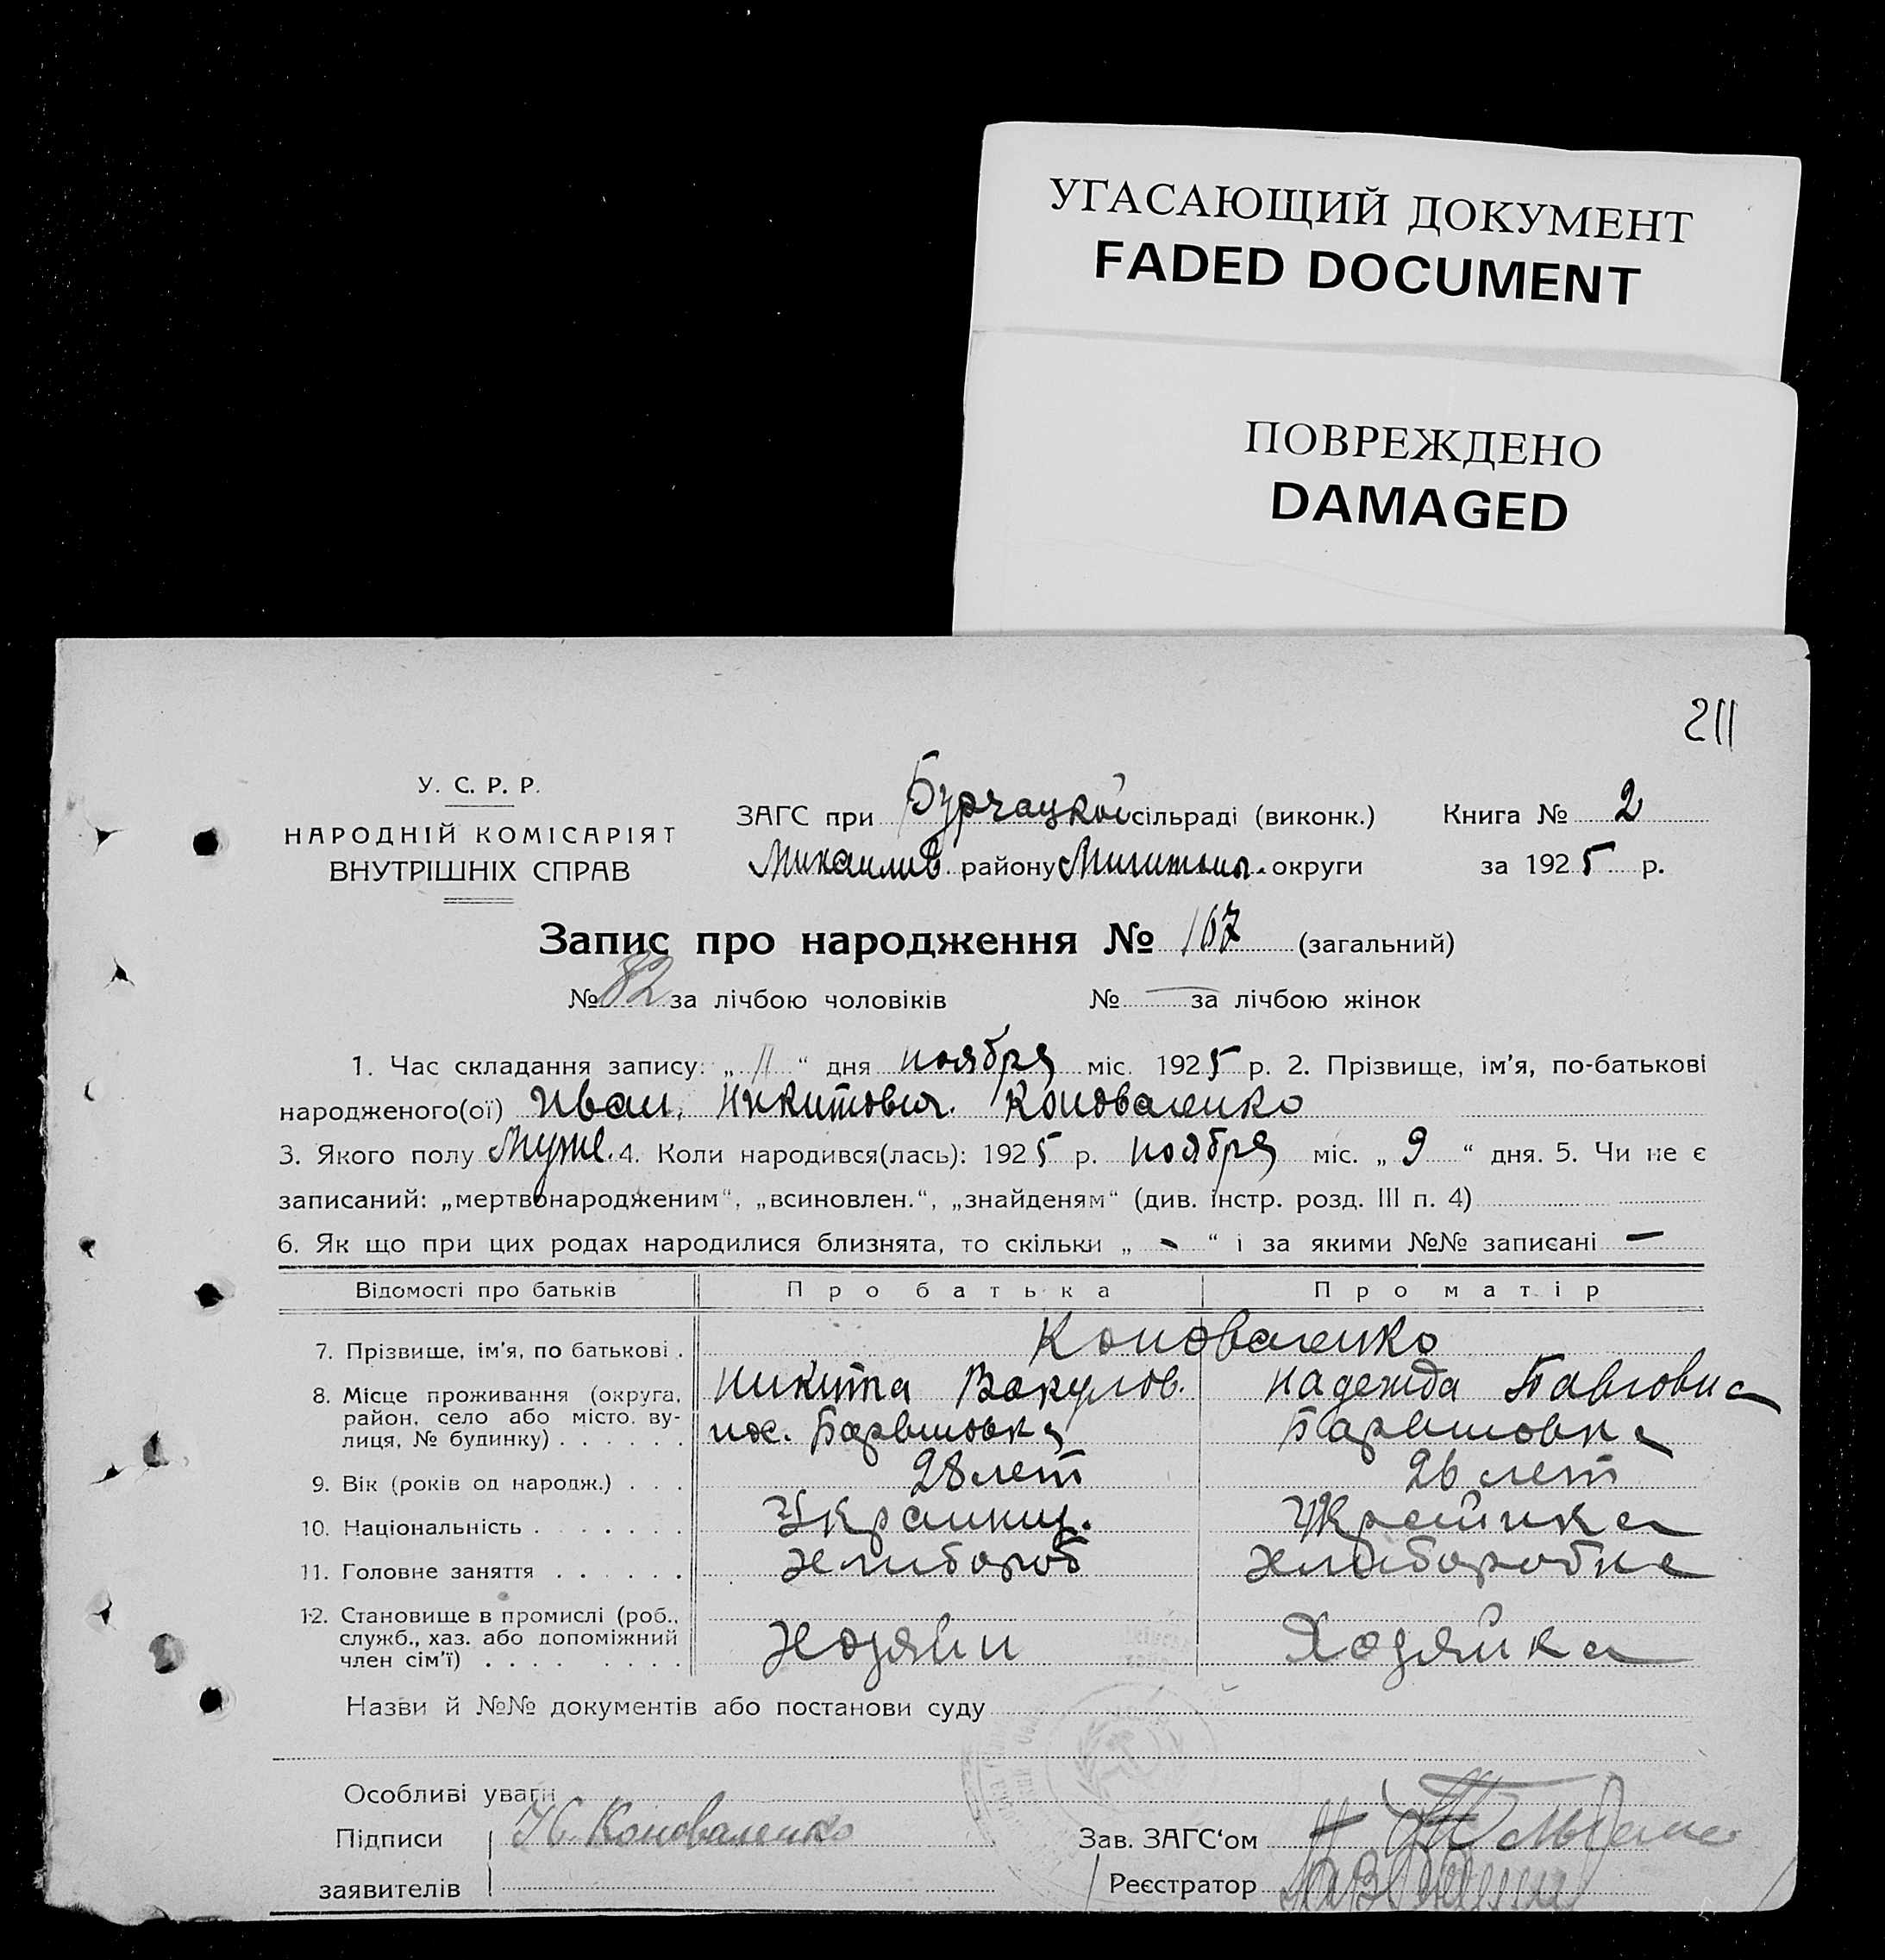 УГАСАЮЩИЙ ДОКУМЕНТ
FADED DOCUMENT
ПОВРЕЖДЕНО
DAMAGED
211
У. С. Р. Р.
НАРОДНІЙ КОМІСАРІЯТ
ВНУТРІШНІХ СПРАВ
ЗАГС при Бурчацкой сільраді (виконк.) Книга № 2
Михайлив. району Милитоп. округи за 1925 р.
Запис про народження № 167 (загальний)
№ 82 за лічбою чоловіків № — за лічбою жінок
1. Час складання запису: „ 11 “ дня ноября міс. 1925 р. 2. Прізвище, ім'я, по-батькові
народженого(ої) Иван. Никитович. Коноваленко
3. Якого полу Мужс. 4. Коли народився(лась): 1925 р. ноября міс. „ 9 “ дня. 5. Чи не є
записаний: „мертвонародженим“, „всиновлен.“, „знайденям“ (див. інстр. розд. III п. 4)
6. Як що при цих родах народилися близнята, то скільки „ - “ і за якими №№ записані —
Відомості про батьків Про батька Про матір
7. Прізвище, ім'я, по батькові . Коноваленко
8. Місце проживання (округа, Никита Вакулов. Надежда Павловна
район, село або місто, ву-
лиця, № будинку) . . . . . . пос. Барвиновка Барвиновка
9. Вік (років од народж.) . . . 28 лет 26 лет
10. Національність . . . . . . . Украинец. Украинка
11. Головне заняття . . . . . . хлибороб хлиборобка
12. Становище в промислі (роб.,
служб., хаз. або допоміжний Хозяин Хозяйка
член сім'ї) . . . . . . . .
Назви й №№ документів або постанови суду
Особливі уваги
Підписи Н. Коноваленко Зав. ЗАГС'ом
заявителів Реєстратор